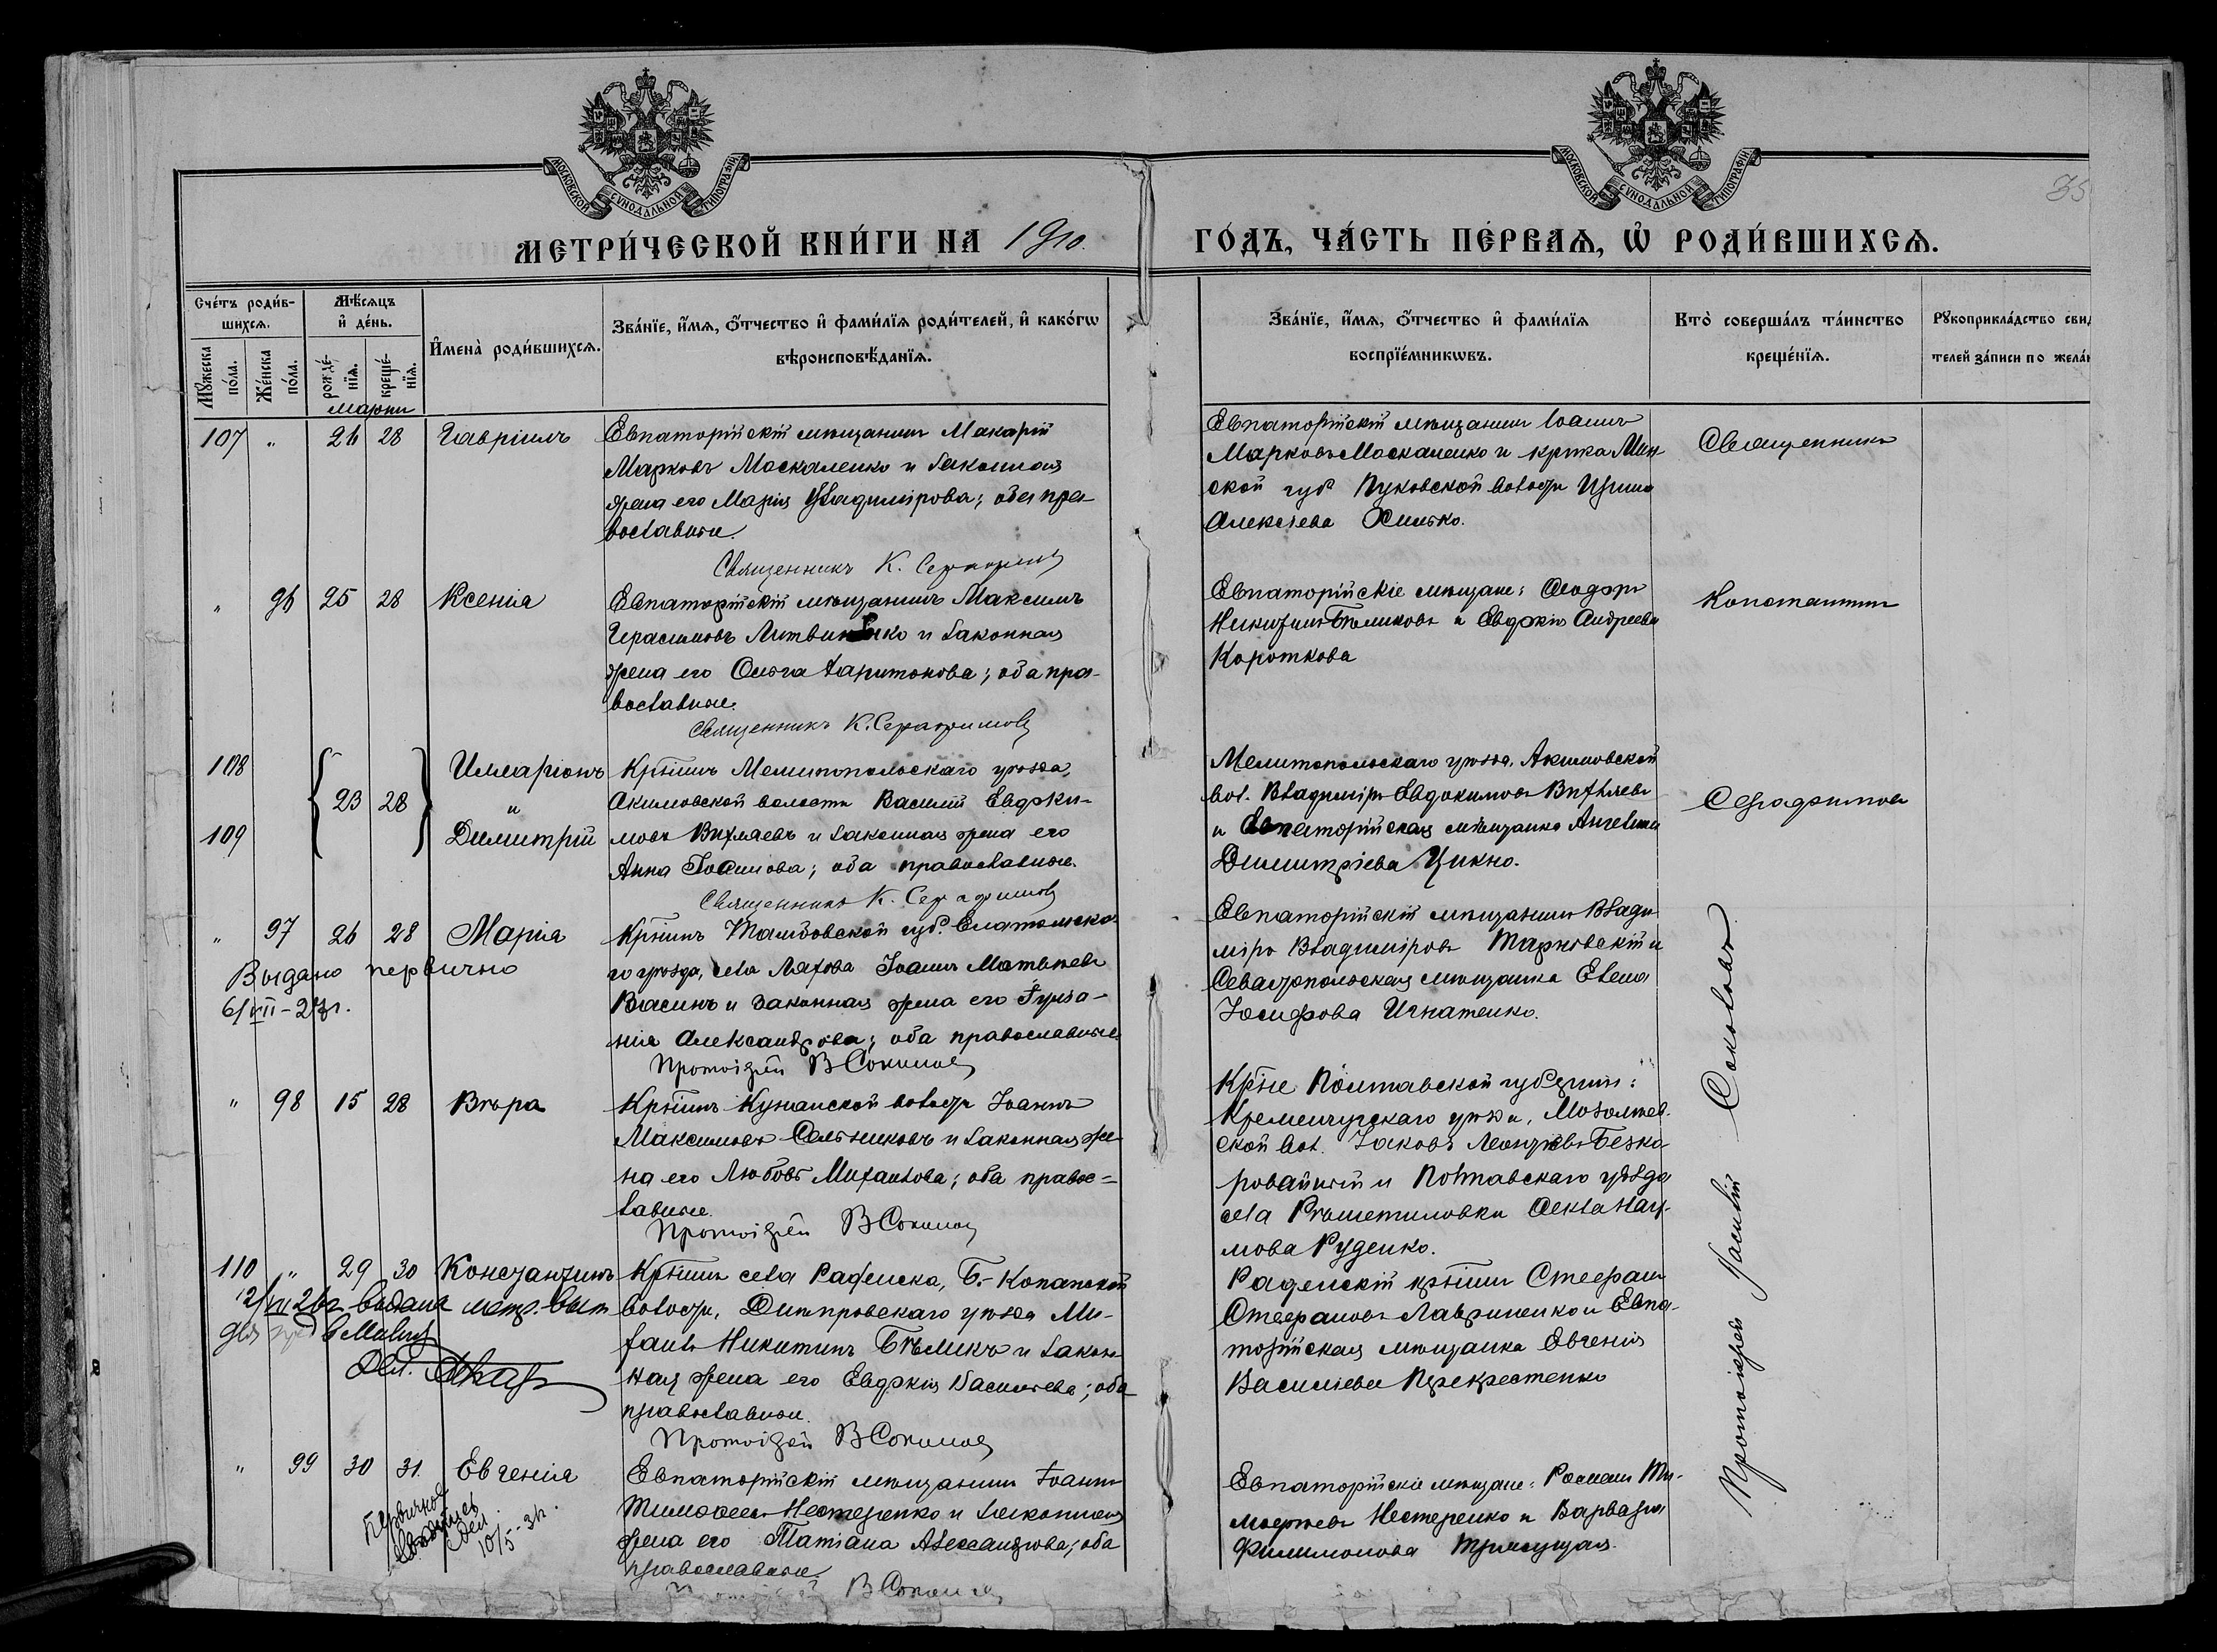 МОСКОВСКОЙ СѴНОДАЛЬНОЙ ТИПОГРАФІИ
МОСКОВСКОЙ СѴНОДАЛЬНОЙ ТИПОГРАФІИ
35
МЕТРИ́ЧЕСКОЙ КНИ́ГИ НА 1910. ГО́ДЪ, ЧА́СТЬ ПЕ́РВАѦ, Ѽ РОДИ́ВШИХСѦ.
Сче́тъ роди́в-
шихсѧ.
Мꙋ́жеска по́ла.
Же́нска по́ла.
Мѣ́сѧцъ
и҆ де́нь.
рожде́-
нїѧ.
креще́-
нїѧ.
И҆мена̀ роди́вшихсѧ.
Зва́нїе, и҆́мѧ, ѻ҆́тчество и҆ фами́лїѧ роди́телей, и҆ како́гѡ
вѣроисповѣ́данїѧ.
Зва́нїе, и҆́мѧ, ѻ҆́тчество и҆ фами́лїѧ
воспрїе́мникѡвъ.
Кто̀ соверша́лъ та́инство
креще́нїѧ.
Рꙋкоприкла́дство свид
телей за́писи по жела́н
марта
107 " 26 28 Гавріилъ
Евпаторійскій мѣщанинъ Макарій
Марковъ Москаленко и законная
жена его Марія Владимірова; оба пра-
вославные.
Священникъ К. Серафимовъ
Евпаторійскій мѣщанинъ Іоаннъ
Марковъ Москаленко и кр-ка Мин-
ской губ. Пуковской волости Ирина
Алексіева Хилько.
Священникъ
" 96 25 28 Ксенія
Евпаторійскій мѣщанинъ Максимъ
Герасимовъ Литвиненко и законная
жена его Ольга Харитонова; оба пра-
вославные.
Священникъ К. Серафимовъ
Евпаторійскіе мѣщане: Ѳеодоръ
Никитинъ Бѣликовъ и Евдокія Андреева
Короткова
Константинъ
108 Илларіонъ
23 28 и
109 Димитрій
Кр-нинъ Мелитопольскаго уѣзда,
Акимовской волости Василій Евдоки-
мовъ Вихляевъ и законная жена его
Анна Іоаннова; оба православные.
Священникъ К. Серафимовъ
Мелитопольскаго уѣзда, Акимовской
вол. Владиміръ Евдокимовъ Вихляевъ
и Евпаторійская мѣщанка Ангелина
Димитріева Цикно.
Серафимовъ
" 97 26 28 Марія
Выдано первично
6/VII-27г.
Кр-нинъ Тамбовской губ. Елатомска-
го уѣзда, села Ляхова Іоаннъ Матѳеевъ
Власинъ и законная жена его Гуиза-
нія Александрова; оба православные
Протоіерей В Соколовъ
Евпаторійскій мѣщанинъ Влади-
міръ Владиміровъ Тарновскій и
Севастопольская мѣщанка Елена
Іосифова Игнатенко.
" 98 15 28 Вѣра
Кр-нинъ Кунанской волости Іоаннъ
Максимовъ Сальниковъ и законная же-
на его Любовь Михаилова; оба правос-
лавные.
Протоіерей В Соколовъ
Кр-не Полтавской губерніи:
Кременчугскаго уѣзда,
ской вол. Іаковъ Безко-
ровайный и Полтавскаго уѣзда
села Рѣшетиловки Ѳекла Нау-
мова Руденко.
110 " 29 30 Константинъ
12/VII 26г. выдана метр. вып
для
Кр-нинъ села Раденска, Б.-Копанской
волости, Днѣпровскаго уѣзда Ми-
хаилъ Никитинъ Бѣликъ и закон-
ная жена его Евдокія Васильева; оба
православные.
Протоіерей В Соколовъ
Раденскій кр-нинъ Стефанъ
Стефановъ Лавриненко и Евпа-
торійская мѣщанка Евгенія
Василіева Перекрестенко
" 99 30 31. Евгенія
Первичное
10/5-34.
Евпаторійскій мѣщанинъ Іоаннъ
Тимоѳеевъ Нестеренко и законная
жена его Татіана Александрова; оба
православные.
Протоіерей В Соколовъ
Евпаторійскіе мѣщане: Романъ Ти-
моѳеевъ Нестеренко и Варвара
Филимонова
Протоіерей Василій Соколовъ